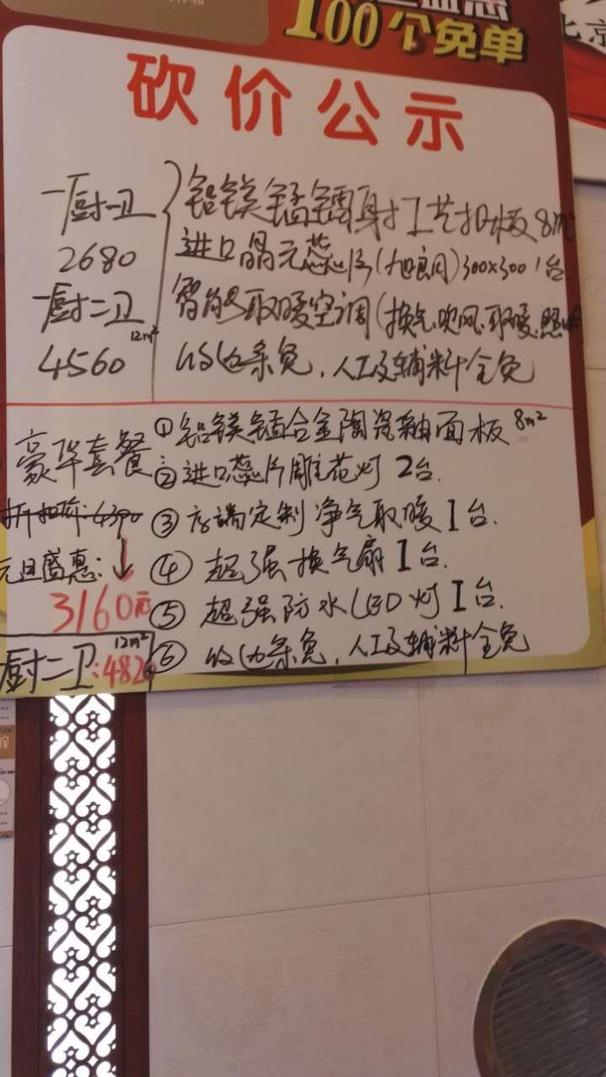 100个免单
砍价公示
一厨一卫
2680
一厨二卫
12m²
4560
铝镁锰镭射工艺扣板8m²
进口晶元蕊片(旭良月)300x300 1台
智能取暖空调(换气.吹风.取暖.照
收边条免,人工及辅料全免
豪华套餐
折扣价:4390
元旦盛惠:↓
3160元
12m²
厨二卫:482
①铝镁锰合金陶瓷釉面板8m²
②进口蕊片雕花灯2台.
③高端定制净气取暖1台.
④超强换气扇1台.
⑤超强防水LED灯1台.
⑥收边条免,人工及辅料全免